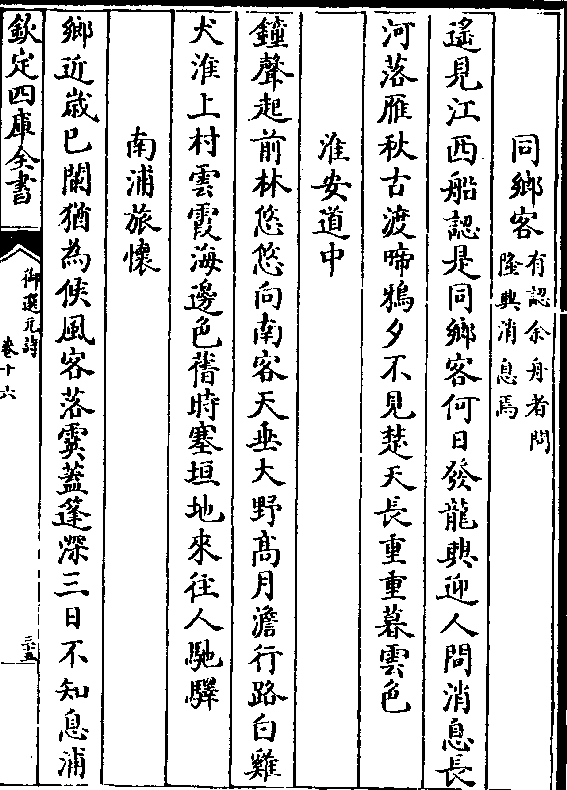 同鄉客有認余舟者問
隆興消息焉
遙見江西船認是同鄉客何日發龍興迎人問消息長
河落雁秋古渡啼鴉夕不見楚天長重重暮雲色
淮安道中
鐘聲起前林悠悠向南客天垂大野髙月澹行路白雞
犬淮上村雲霞海邊色舊時塞垣地來往人馳驛
南浦旅懷
鄉近嵗已闌猶為候風客落雲蓋篷深三日不知息浦
欽定四庫全書
御選元詩
卷十六
三十五